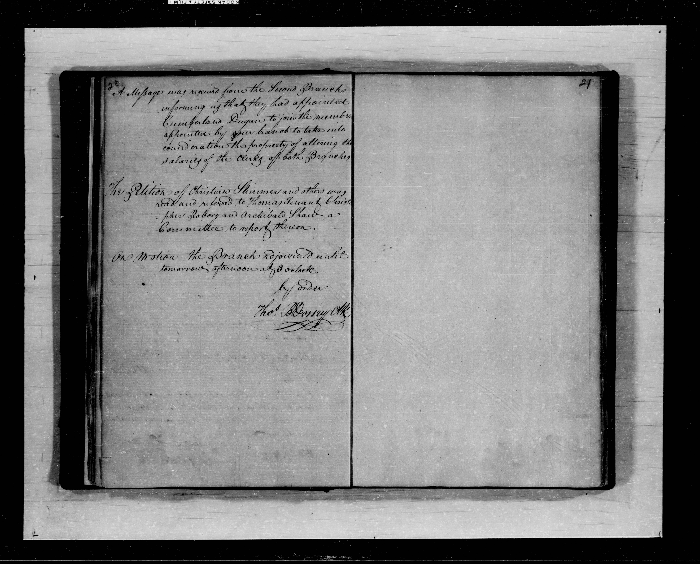 A Message was received from the Second Branch
informing us that they had appointed
Cumberland Dugan to join the member
appointed by our branch to take into
consideration the propriety of altering the
salaries of the Clerks of both Branches
The Petition of Christian Slimmer and others was
read and referred to Thomas Christo
pher Raborg and Archibald Shaw a
Committee to report thereon.
On motion the Branch adjourned until
tomorrow afternoon at 3 oClock
by order
Thos. B Dorsey Clk
21